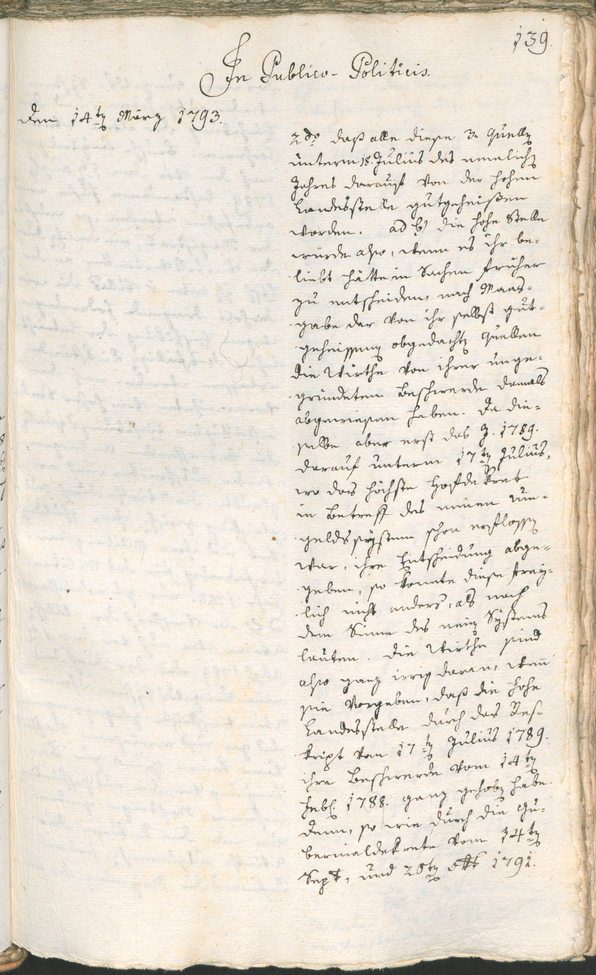 139.
In Publico-Politicis.
den 14ten März 1793.
2do daß alle diese 3 Quellen
unterm 18. Julius des nemlichen
Jahres darauf von der hohen
Landesstelle gutgeheißen
worden. ad b) die hohe Stelle
würde also, wenn es ihr be-
liebt hätte in Sachen früher
zu entscheiden, nach Maas-
gabe der von ihr selbst gut-
geheissenen obgedachten Quellen
die Wirthe von ihrer unge-
gründeten Beschwerde damals
abgewiesen haben. Da die-
selbe aber erst das J. 1789.
darauf unterm 17ten Julius,
wo das höchste Hofdekret
in Betreff des neuen Um-
geldssystem schon erflossen
war, ihre Entscheidung abge-
geben, so konnte diese frey-
lich nicht anders, als nach
dem Sinne des neuen Systems
lauten. Die Wirthe sind
also ganz irrig daran, wenn
sie vorgeben, daß die hohe
Landesstelle durch das Res-
kript vom 17ten Julius 1789.
ihre Beschwerde vom 14ten
Feb. 1788. ganz gehoben habe.
denn, so wie durch die Gu-
bernialdekrete vom 14ten
Sept. und 28ten 1791.